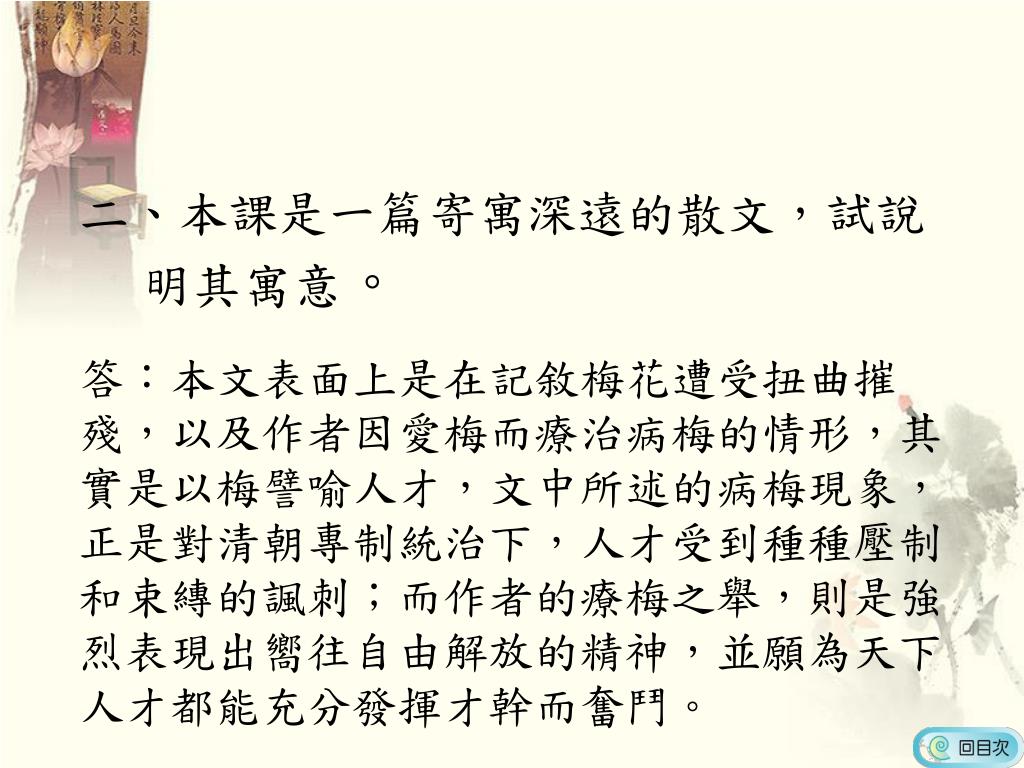 二、本課是一篇寄寓深遠的散文，試說
明其寓意。
答：本文表面上是在記敘梅花遭受扭曲摧
殘，以及作者因愛梅而療治病梅的情形，其
實是以梅譬喻人才，文中所述的病梅現象，
正是對清朝專制統治下，人才受到種種壓制
和束縛的諷刺；而作者的療梅之舉，則是強
烈表現出嚮往自由解放的精神，並願為天下
人才都能充分發揮才幹而奮鬥。
回目次